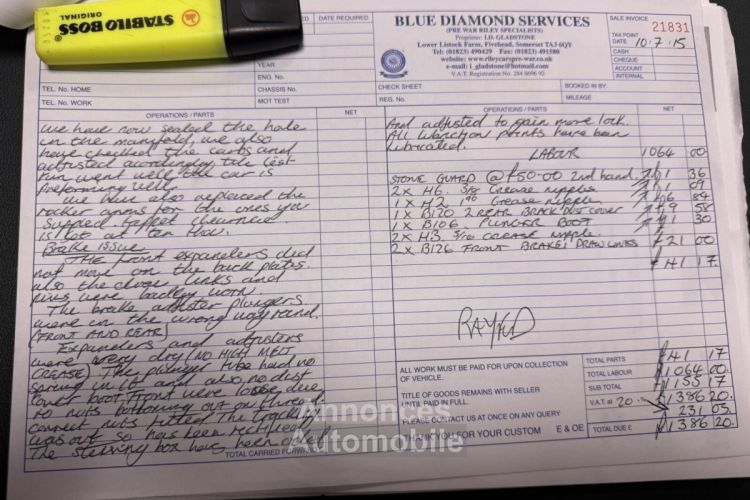 STABILO BOSS
ORIGINAL
DATE REQUIRED
YEAR
ENG. No.
TEL. No. HOME
CHASSIS No.
TEL. No. WORK
MOT TEST
BLUE DIAMOND SERVICES
(PRE WAR RILEY SPECIALISTS)
Proprietor: I.D. GLADSTONE
Lower Listock Farm, Fivehead, Somerset TA3 6QY
Tel: (01823) 490429 Fax: (01823) 491580
website: www.rileycarspre-war.co.uk
e-mail: i_gladstone@hotmail.com
V.A.T. Registration No. 284 8696 92
SALE INVOICE
21831
TAX POINT
DATE 10.7.15
CASH
CHEQUE
ACCOUNT
INTERNAL
CHECK SHEET
BOOKED IN BY:
REG. No.
MILEAGE
OPERATIONS / PARTS
NET
We have now sealed the hole
in the manifold, we also
have checked the carbs and
adjusted accordingly, the test
run went well the car is
Preforming well.
We have also replaced the
rocker for the ones you
tappet clearance
is 1 lot at ten thou.
Brake issue
The front expanders did
not move on the back plates.
also the clover links and
pins were badley worn.
The brake adjuster plungers
were in the wrong way round.
(FRONT AND REAR)
Expanders and adjusters
were very dry (NO HIGH MELT
GREASE) The plunger tube had no
spring in it and also no dust
cover boot front were loose due
to nuts bottoming out on thread.
correct nuts fitted The tracking
was out so has been rectified
The steering box has been oiled
TOTAL CARRIED FORWARD
OPERATIONS / PARTS
NET
And adjusted to gain more lock.
All lubrication points have been
lubricated.
LABOUR 1064 00
STONE GUARD @ £50-00 2nd hand 36
2x H6. 5/16 Grease nipples 09
1x H2 Grease nipple 84
1x B120 2 REAR BRAKE DUST COVER 58
1x B106. PLUNGER BOOT 30
2x H3 5/16 GREASE nipple.
2x B126 FRONT BRAKE DRAW LINKS £21 00
£41 17.
RAYFUD
ALL WORK MUST BE PAID FOR UPON COLLECTION
OF VEHICLE.
TITLE OF GOODS REMAINS WITH SELLER
UNTIL PAID IN FULL.
PLEASE CONTACT US AT ONCE ON ANY QUERY
THANK YOU FOR YOUR CUSTOM E & OE
TOTAL PARTS £41 17
TOTAL LABOUR £1064 00
SUB TOTAL £1155 17
V.A.T. at 20 £1386 20
231 03
TOTAL DUE £ £1386 20
Annonces
Automobile